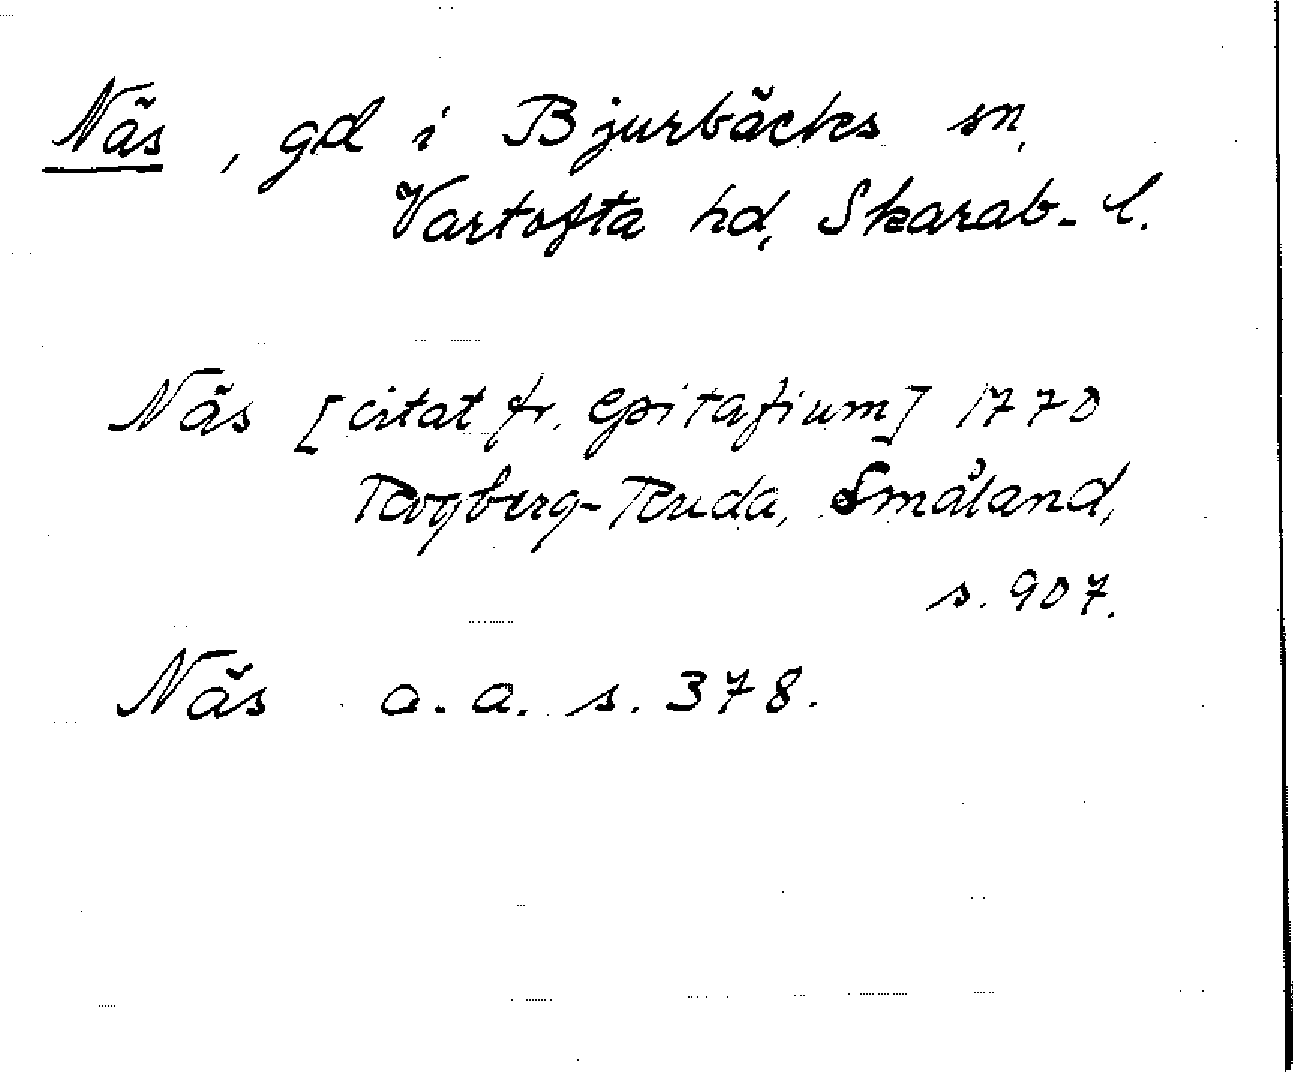 Näs, gd i Bjurbäcks sn,
Vartofta hd, Skarab. l.
Näs [citat fr. epitafium] 1770
Rogberg-Ruda, Småland,
s. 907.
Näs a.a. s. 378.